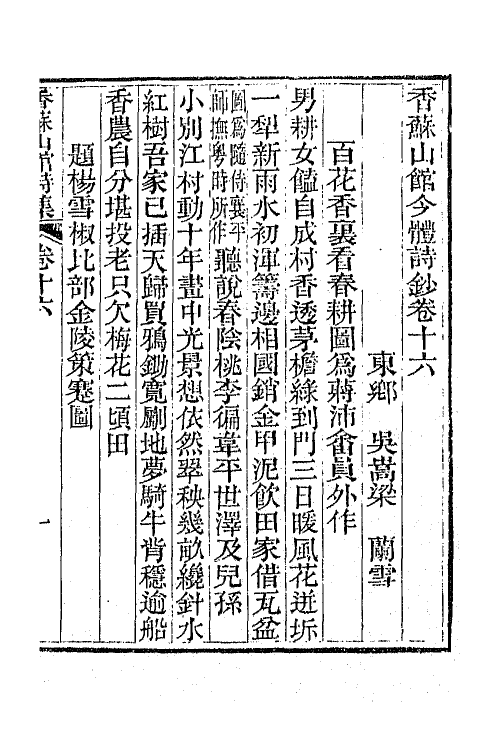 香蘇山館今體詩鈔卷十六
東鄉　吳嵩梁　蘭雪
百花香裏看春耕圖爲蔣沛畬員外作
男耕女饁自成村香透茅檐綠到門三日暖風花迸坼
一犂新雨水初渾籌邊相國銷金甲泥飲田家借瓦盆
圖爲隨侍襄平
師撫粵時所作
聽說春陰桃李徧韋平世澤及兒孫
小別江村動十年畫中光景想依然翠秧幾畝纔針水
紅樹吾家已插天歸買鴉鋤寬劚地夢騎牛背穩逾船
香農自分堪投老只欠梅花二頃田
題楊雪椒比部金陵策蹇圖
香蘇山館詩集　卷十六　一